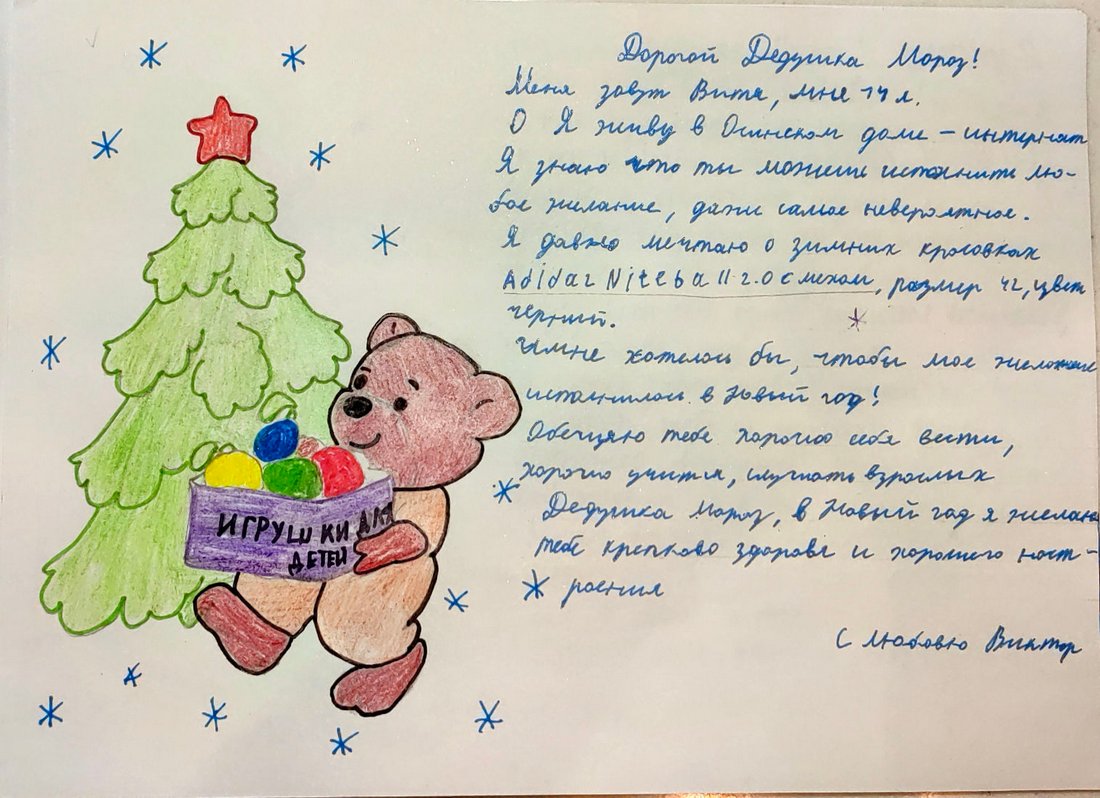 Дорогой Дедушка Мороз!
Меня зовут Витя, мне 14 л.
О Я живу в Осинском доме - интернат
Я знаю что ты можешь исполнить лю-
бое желание, даже самое невероятное.
Я давно мечтаю о зимних кросовках
Adidas Niteball 2.0 с мехом, размер 42, цвет
черный.
И мне хотелось бы, чтобы мое желание
исполнилось в Новый год!
Обещяю тебе хорошо себя вести,
хорошо учится, слушать взрослых
Дедушка Мороз, в Новый год я желаю
тебе крепково здоровя и хорошего наст-
роения
С любовю Виктор
ИГРУШКИ ДЛЯ
ДЕТЕЙ